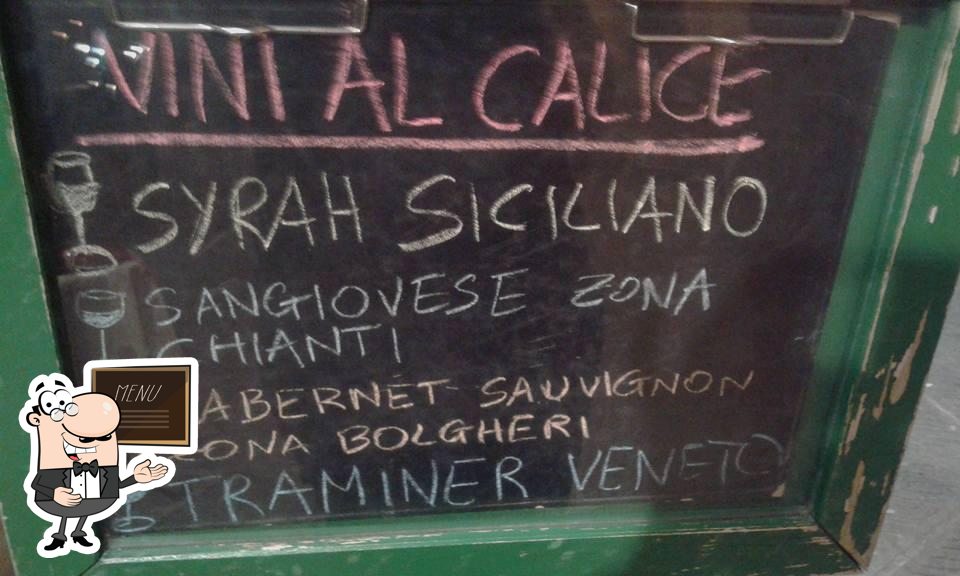 VINI AL CALICE
SYRAH SICILIANO
SANGIOVESE ZONA
CHIANTI
ABERNET SAUVIGNON
ONA BOLGHERI
TRAMINER VENETO
MENU